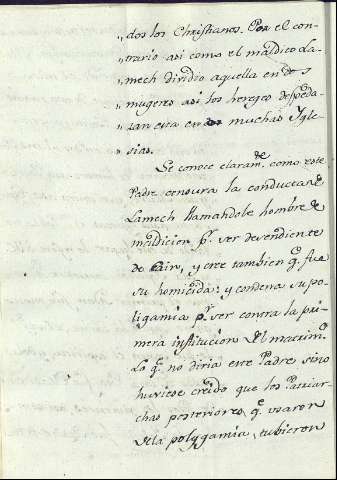 „dos los Christianos. Por el con-
„trario asi como el maldico La-
„mech dividio aquella en dos
„mugeres asi los hereges despeda-
„zan esta en muchas Ygle-
„sias.
Se conoce claramte. como este
Padre censura la conducta de
Lamech llamandole hombre de
maldicion pr. ser descendiente
de Cain, y cree tambien qe. fue
su homicida: y condena su po-
ligamia pr. ser contra la pri-
mera institucion del matrimo.
Lo qe. no diria este Padre sino
huviese creido que los Patriar-
chas posteriores qe. usaron
de la polygamia, tubieron